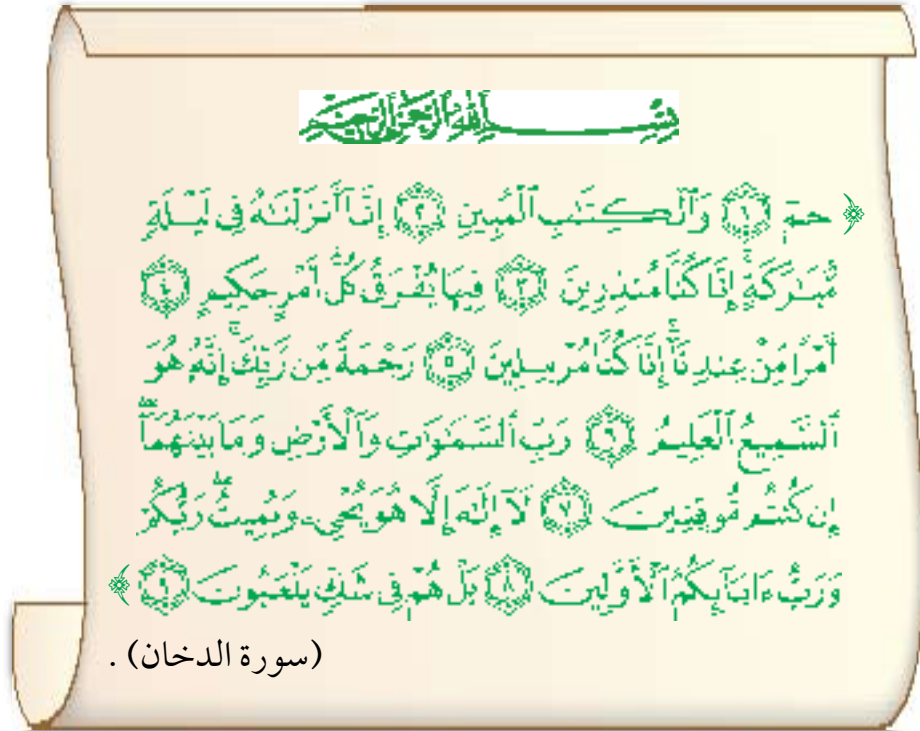 بِسْمِ اللَّهِ الرَّحْمَٰنِ الرَّحِيمِ
﴿ حمٓ ١ وَٱلْكِتَٰبِ ٱلْمُبِينِ ٢ إِنَّآ أَنزَلْنَٰهُ فِى لَيْلَةٍ
مُّبَٰرَكَةٍ ۚ إِنَّا كُنَّا مُنذِرِينَ ٣ فِيهَا يُفْرَقُ كُلُّ أَمْرٍ حَكِيمٍ ٤
أَمْرًا مِّنْ عِندِنَآ ۚ إِنَّا كُنَّا مُرْسِلِينَ ٥ رَحْمَةً مِّن رَّبِّكَ ۚ إِنَّهُۥ هُوَ
ٱلسَّمِيعُ ٱلْعَلِيمُ ٦ رَبِّ ٱلسَّمَٰوَٰتِ وَٱلْأَرْضِ وَمَا بَيْنَهُمَآ ۖ
إِن كُنتُم مُّوقِنِينَ ٧ لَآ إِلَٰهَ إِلَّا هُوَ يُحْىِۦ وَيُمِيتُ ۖ رَبُّكُمْ
وَرَبُّ ءَابَآئِكُمُ ٱلْأَوَّلِينَ ٨ بَلْ هُمْ فِى شَكٍّ يَلْعَبُونَ ٩ ﴾
(سورة الدخان) .